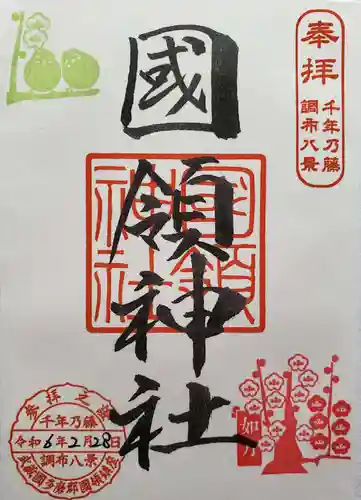 奉拝
千年乃藤
調布八景
國領神社
國領神社
参拝之證
千年乃藤
令和6年2月28日
調布八景
武蔵國多摩郡國領鎮座
如月